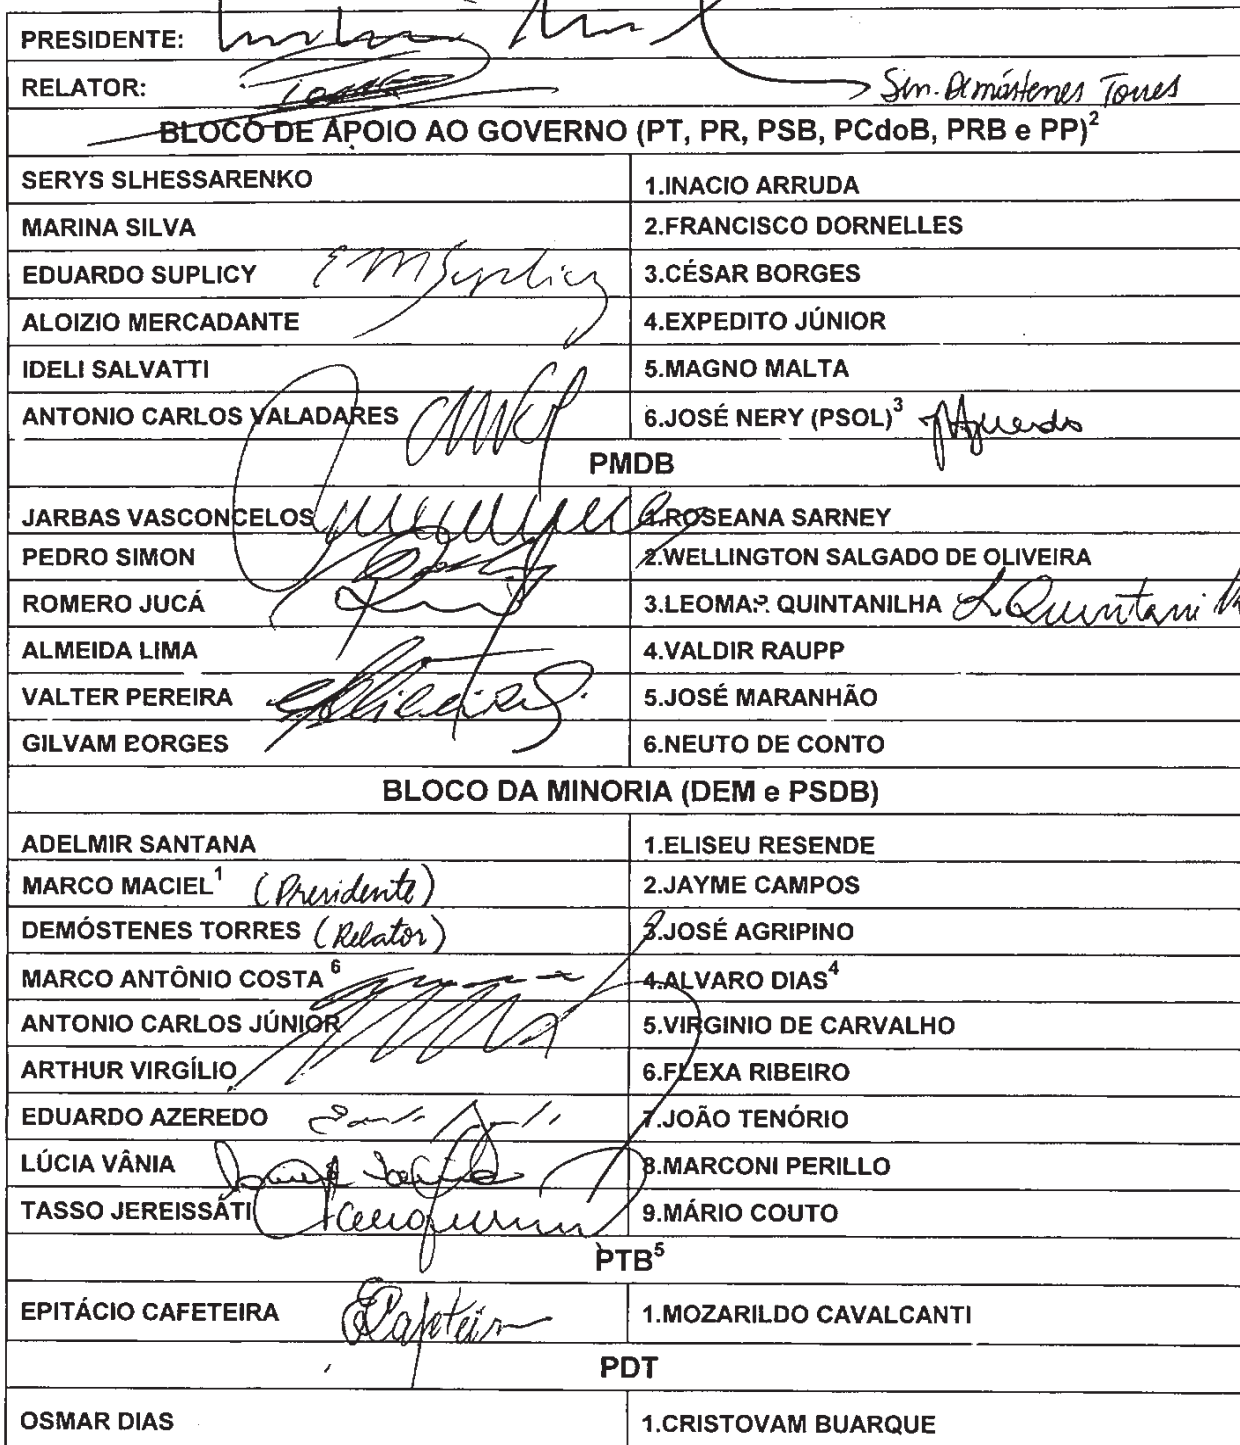 PRESIDENTE:
RELATOR: Sen. Demóstenes Torres
BLOCO DE APOIO AO GOVERNO (PT, PR, PSB, PCdoB, PRB e PP)2
SERYS SLHESSARENKO 1.INACIO ARRUDA
MARINA SILVA 2.FRANCISCO DORNELLES
EDUARDO SUPLICY EMSuplicy 3.CÉSAR BORGES
ALOIZIO MERCADANTE 4.EXPEDITO JÚNIOR
IDELI SALVATTI 5.MAGNO MALTA
ANTONIO CARLOS VALADARES 6.JOSÉ NERY (PSOL)3
PMDB
JARBAS VASCONCELOS 1.ROSEANA SARNEY
PEDRO SIMON 2.WELLINGTON SALGADO DE OLIVEIRA
ROMERO JUCÁ 3.LEOMAR QUINTANILHA LQuintanilha
ALMEIDA LIMA 4.VALDIR RAUPP
VALTER PEREIRA 5.JOSÉ MARANHÃO
GILVAM BORGES 6.NEUTO DE CONTO
BLOCO DA MINORIA (DEM e PSDB)
ADELMIR SANTANA 1.ELISEU RESENDE
MARCO MACIEL1 (Presidente) 2.JAYME CAMPOS
DEMÓSTENES TORRES (Relator) 3.JOSÉ AGRIPINO
MARCO ANTÔNIO COSTA6 4.ALVARO DIAS4
ANTONIO CARLOS JÚNIOR 5.VIRGINIO DE CARVALHO
ARTHUR VIRGÍLIO 6.FLEXA RIBEIRO
EDUARDO AZEREDO 7.JOÃO TENÓRIO
LÚCIA VÂNIA 8.MARCONI PERILLO
TASSO JEREISSATI 9.MÁRIO COUTO
PTB5
EPITÁCIO CAFETEIRA ECafeteira 1.MOZARILDO CAVALCANTI
PDT
OSMAR DIAS 1.CRISTOVAM BUARQUE